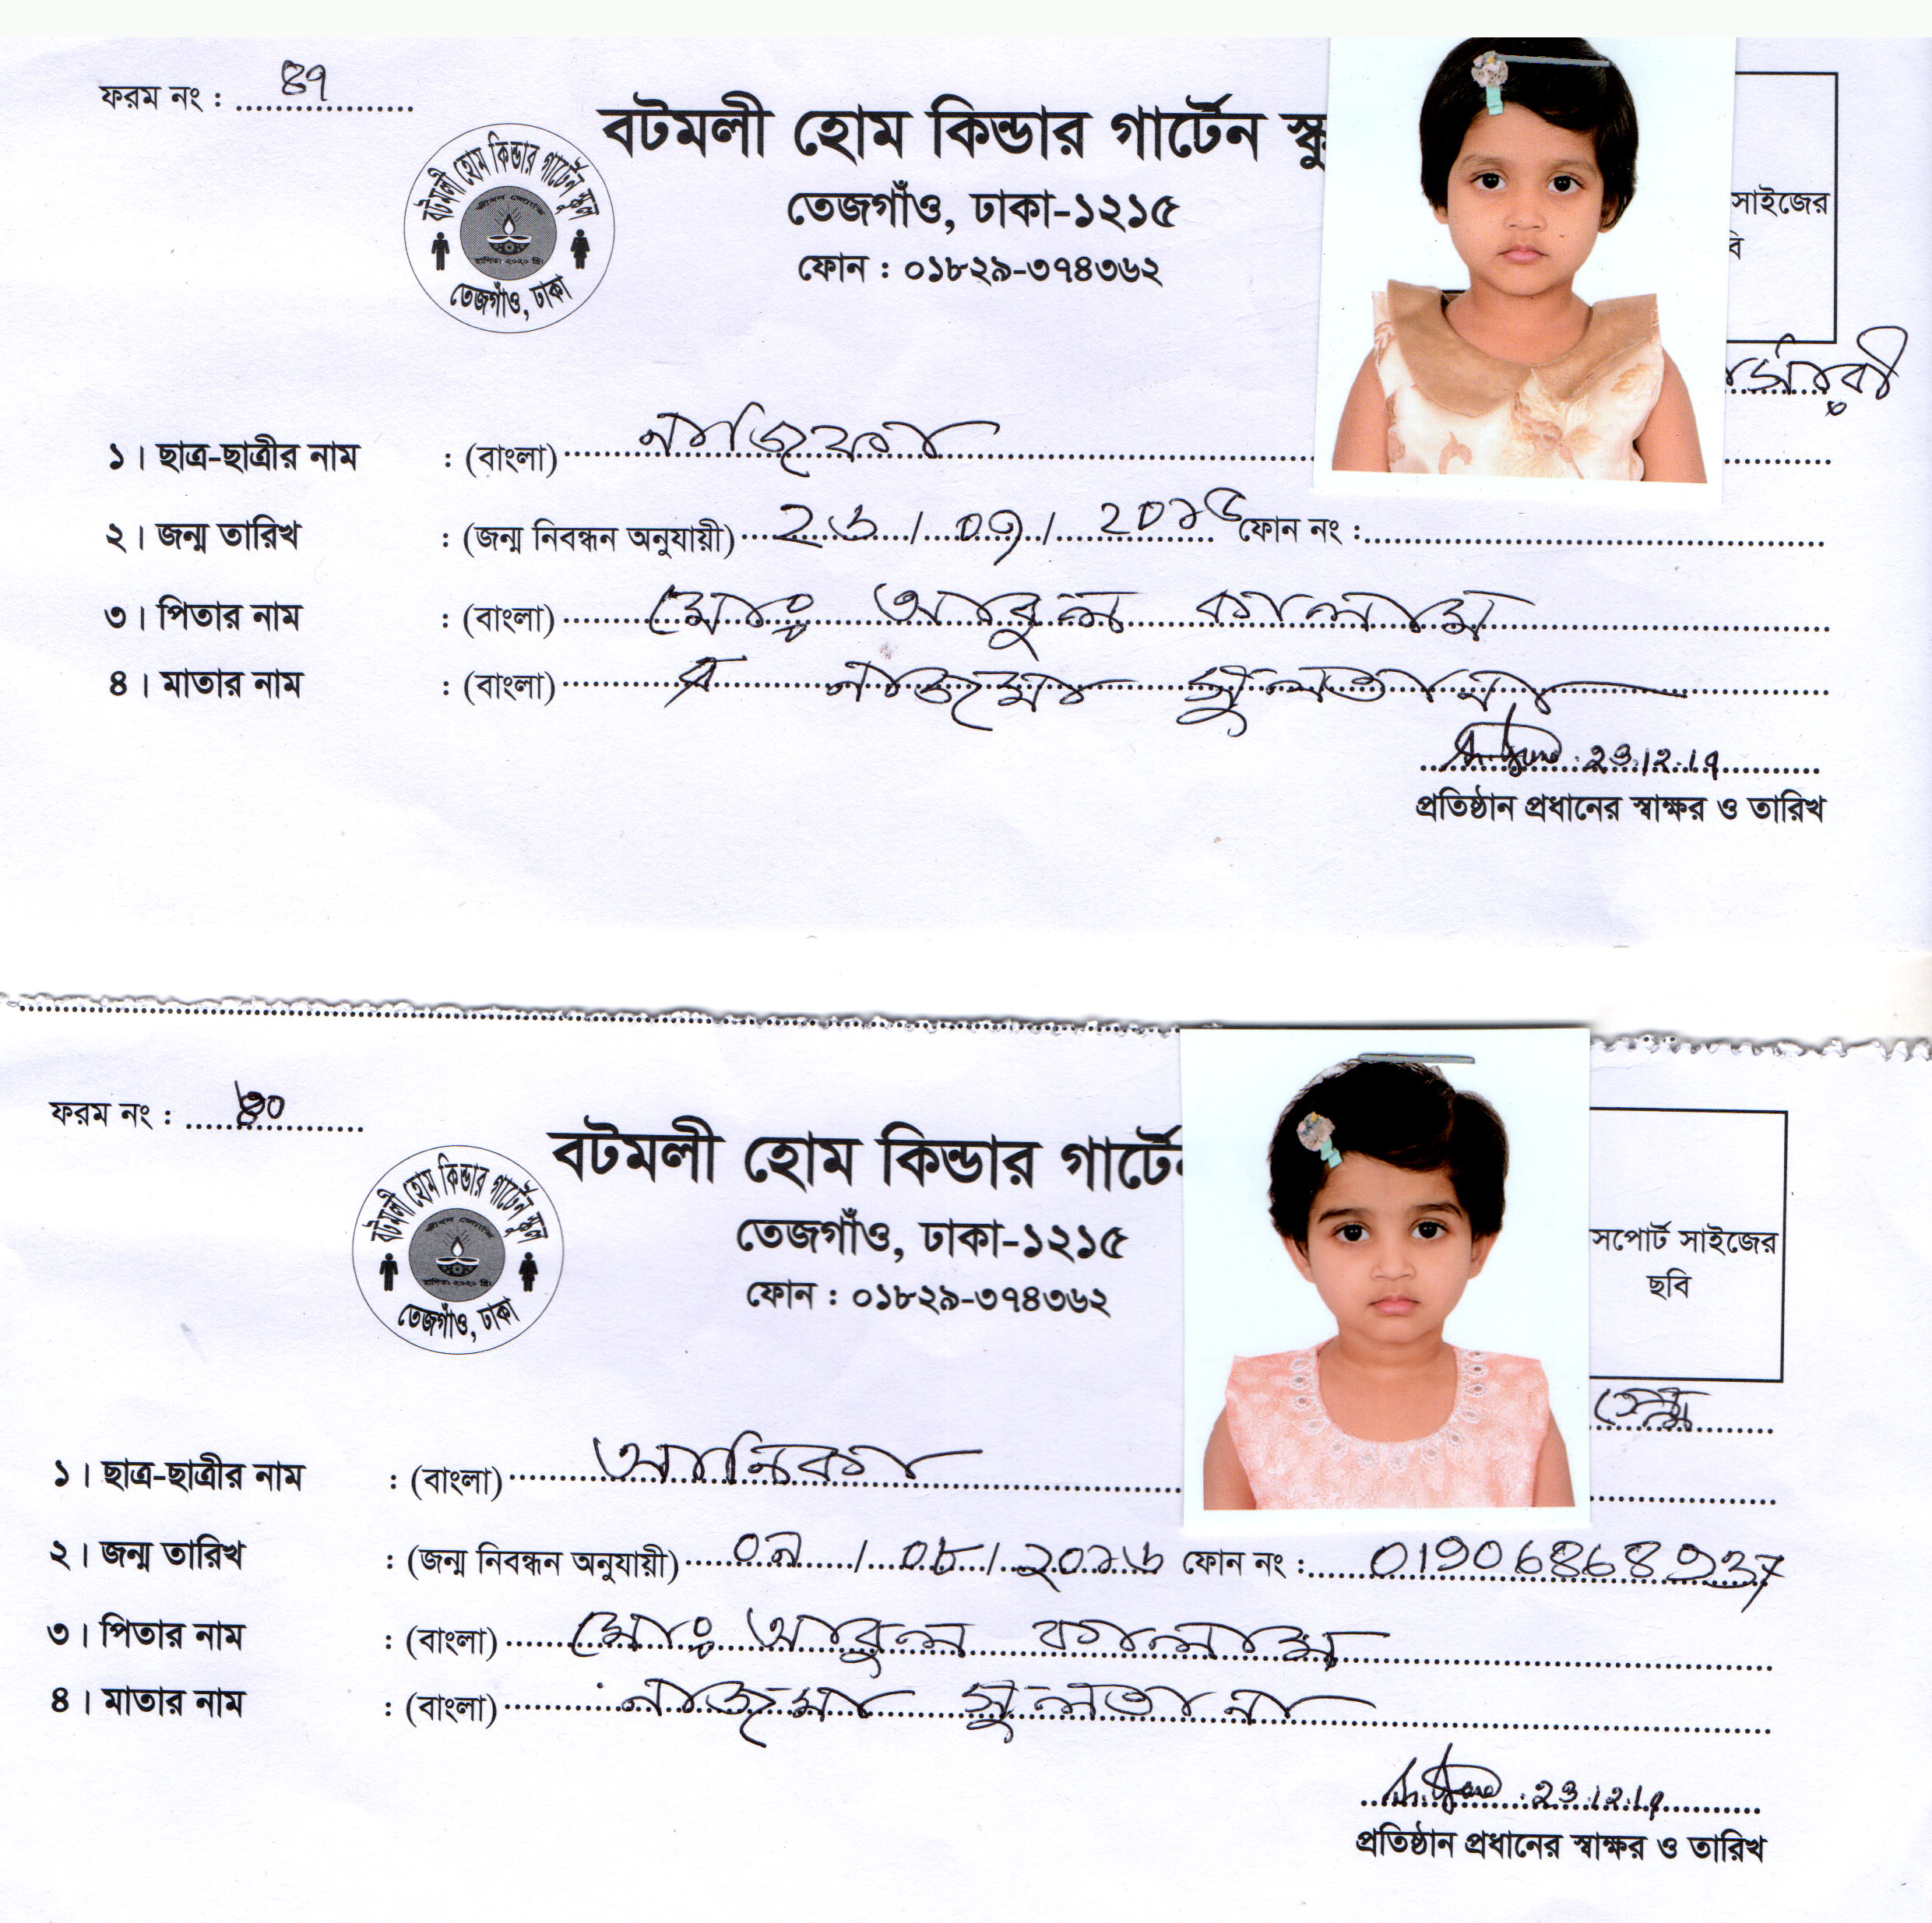 ফরম নং : ৪৭
বটমলী হোম কিন্ডার গার্টেন স্কু
তেজগাঁও, ঢাকা-১২১৫
ফোন : ০১৮২৯-৩৭৪৩৬২
বটমলী হোম কিন্ডার গার্টেন স্কুল
তেজগাঁও, ঢাকা
সাইজের
বি
র্সারী
১। ছাত্র-ছাত্রীর নাম : (বাংলা) নাজিফা
২। জন্ম তারিখ : (জন্ম নিবন্ধন অনুযায়ী) ২৬/০৭/ ফোন নং :
৩। পিতার নাম : (বাংলা) মোঃ আবুল কালাম
৪। মাতার নাম : (বাংলা) নাজমা সুলতানা
২৩.১২.১৭
প্রতিষ্ঠান প্রধানের স্বাক্ষর ও তারিখ
ফরম নং :
বটমলী হোম কিন্ডার গার্টে
তেজগাঁও, ঢাকা-১২১৫
ফোন : ০১৮২৯-৩৭৪৩৬২
বটমলী হোম কিন্ডার গার্টেন স্কুল
তেজগাঁও, ঢাকা
সপোর্ট সাইজের
ছবি
১। ছাত্র-ছাত্রীর নাম : (বাংলা) আনিকা
২। জন্ম তারিখ : (জন্ম নিবন্ধন অনুযায়ী) /০৮/২০১৬ ফোন নং :
৩। পিতার নাম : (বাংলা) মোঃ আবুল কালাম
৪। মাতার নাম : (বাংলা) নাজমা সুলতানা
২৩.১২.১৭
প্রতিষ্ঠান প্রধানের স্বাক্ষর ও তারিখ